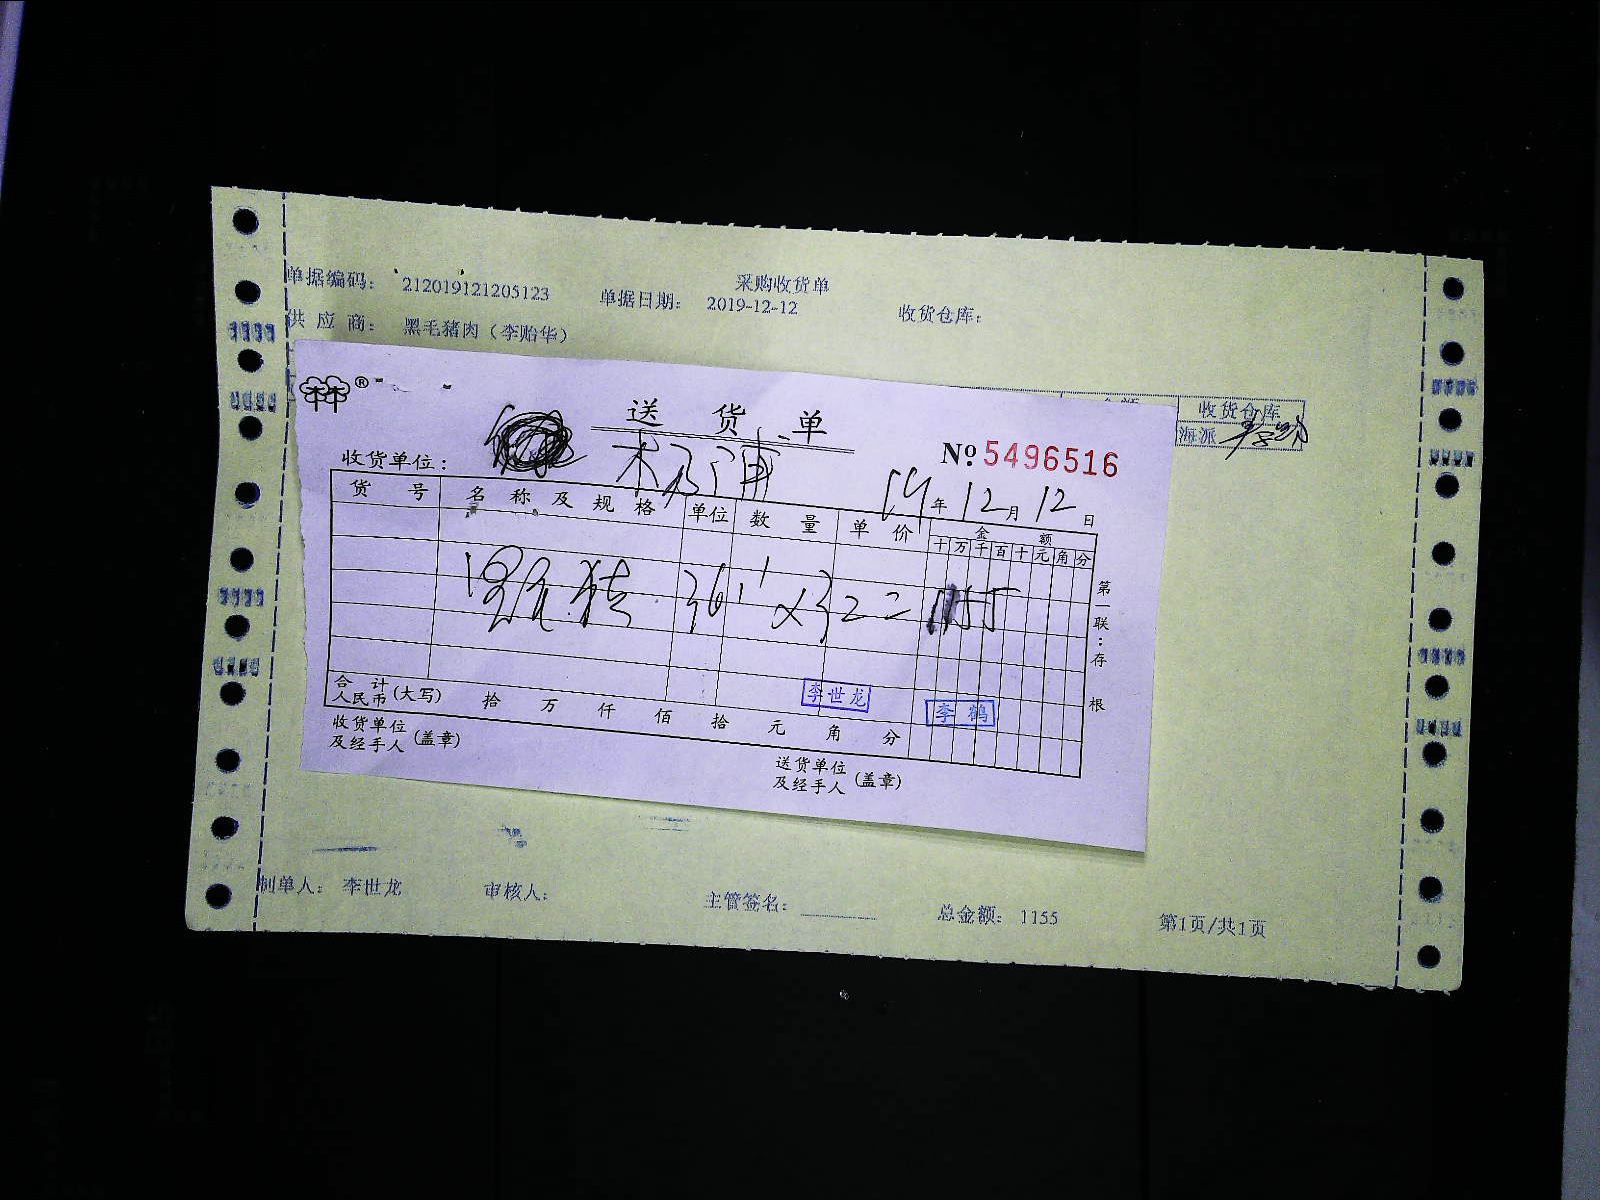 采购收货单
单据编码： 212019121205123 单据日期： 2019-12-12 收货仓库：
供 应 商： 黑毛猪肉（李贻华）
收货仓库
海派
®
送 货 单
№ 5496516
收货单位：
19年 12月 12日
货 号 名 称 及 规 格 单位 数 量 单 价 金 额
十 万 千 百 十 元 角 分
黑毛猪 36.1 × 32 =
第一联：存根
合 计
人民币 (大写) 拾 万 仟 佰 拾 元 角 分
李世龙
李 鹤
收货单位
及经手人 (盖章)
送货单位
及经手人 (盖章)
制单人： 李世龙 审核人： 主管签名： 总金额： 1155 第1页/共1页